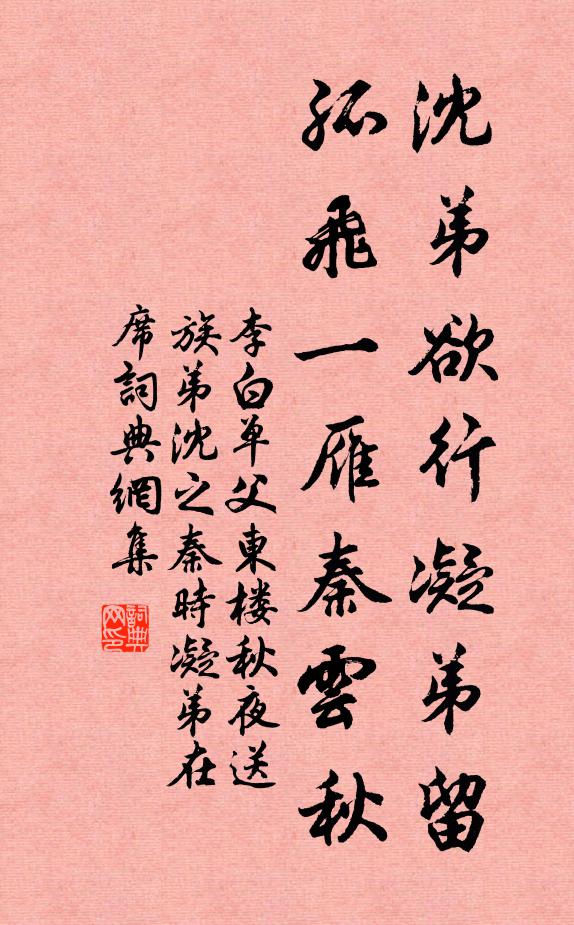 沈弟欲行凝弟留
孤飛一雁秦雲秋
李白单父東楼秋夜送
族弟沈之秦時凝弟在
席詞典網集
詞典网印